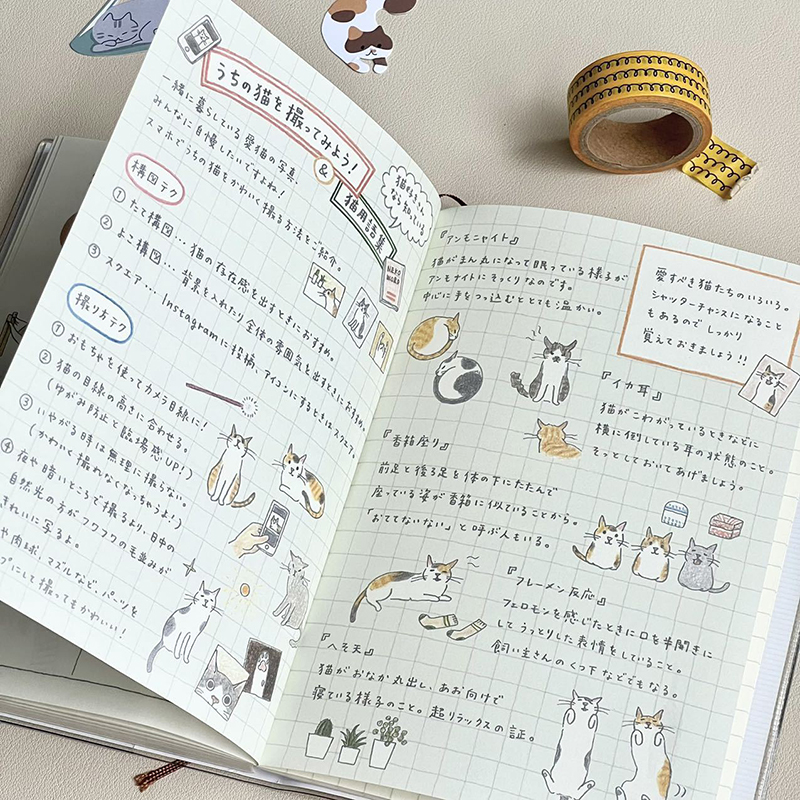 うちの猫を撮ってみよう！
&
猫用語集
猫好きさん
なら知っている
一緒に暮らしている愛猫の写真、
みんなに自慢したいですよね！
スマホでうちの猫をかわいく撮る方法をご紹介。
構図テク
① たて構図… 猫の存在感を出すときにおすすめ。
② よこ構図… 背景を入れたり全体の雰囲気を出すときにおすすめ。
③ スクエア… Instagramに投稿、アイコンにするときはスクエア。
NEKO
WORD
撮り方テク
① おもちゃを使ってカメラ目線に！
② 猫の目線の高さに合わせる。
(ゆがみ防止と臨場感UP!)
③ いやがる時は無理に撮らない。
(かわいく撮れなくなっちゃうよ!)
④ 夜や暗いところで撮るより、日中の
自然光の方がフワフワの毛並みが
きれいに写るよ。
や肉球、マズルなど、パーツを
プにして撮ってもかわいい！
『アンモニャイト』
猫がまん丸になって眠っている様子が
アンモナイトにそっくりなのです。
中心に手をつっ込むととても温かい。
愛すべき猫たちのいろいろ。
シャッターチャンスになること
もあるのでしっかり
覚えておきましょう！！
『イカ耳』
猫がこわがっているときなどに
横に倒している耳の状態のこと。
そっとしておいてあげましょう。
『香箱座り』
前足と後ろ足を体の下にたたんで
座っている姿が香箱に似ていることから。
「おててないない」と呼ぶ人もいる。
『フレーメン反応』
フェロモンを感じたときに口を半開きに
してうっとりした表情をしていること。
飼い主さんのくつ下などでもなる。
『へそ天』
猫がおなか丸出し、あお向けで
寝ている様子のこと。超リラックスの証。